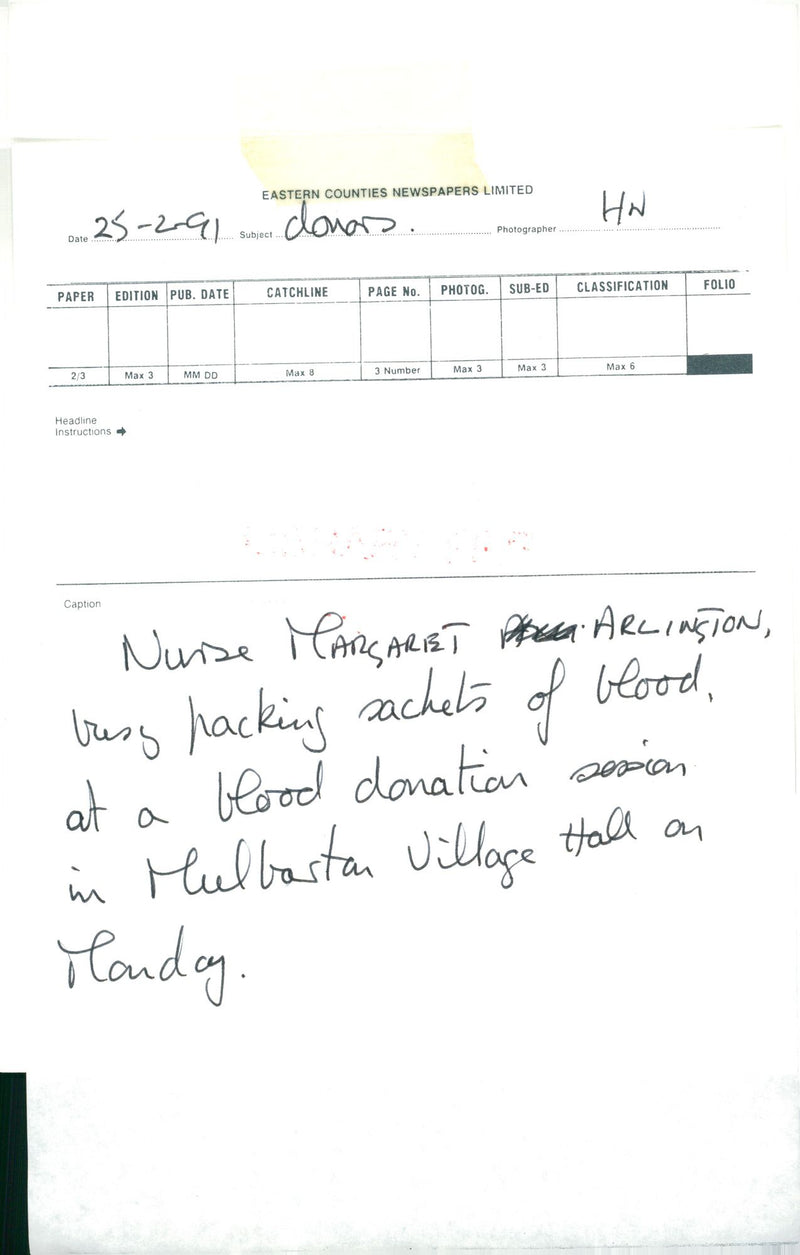 EASTERN COUNTIES NEWSPAPERS LIMITED
Date 25-2-91 Subject donors. Photographer HN
PAPER EDITION PUB. DATE CATCHLINE PAGE No. PHOTOG. SUB-ED CLASSIFICATION FOLIO
2/3 Max 3 MM DD Max 8 3 Number Max 3 Max 3 Max 6
Headline
Instructions ➡
Caption
Nurse MARGARET ARLINGTON,
busy packing sachets of blood,
at a blood donation session
in Mulbarton Village Hall on
Monday.